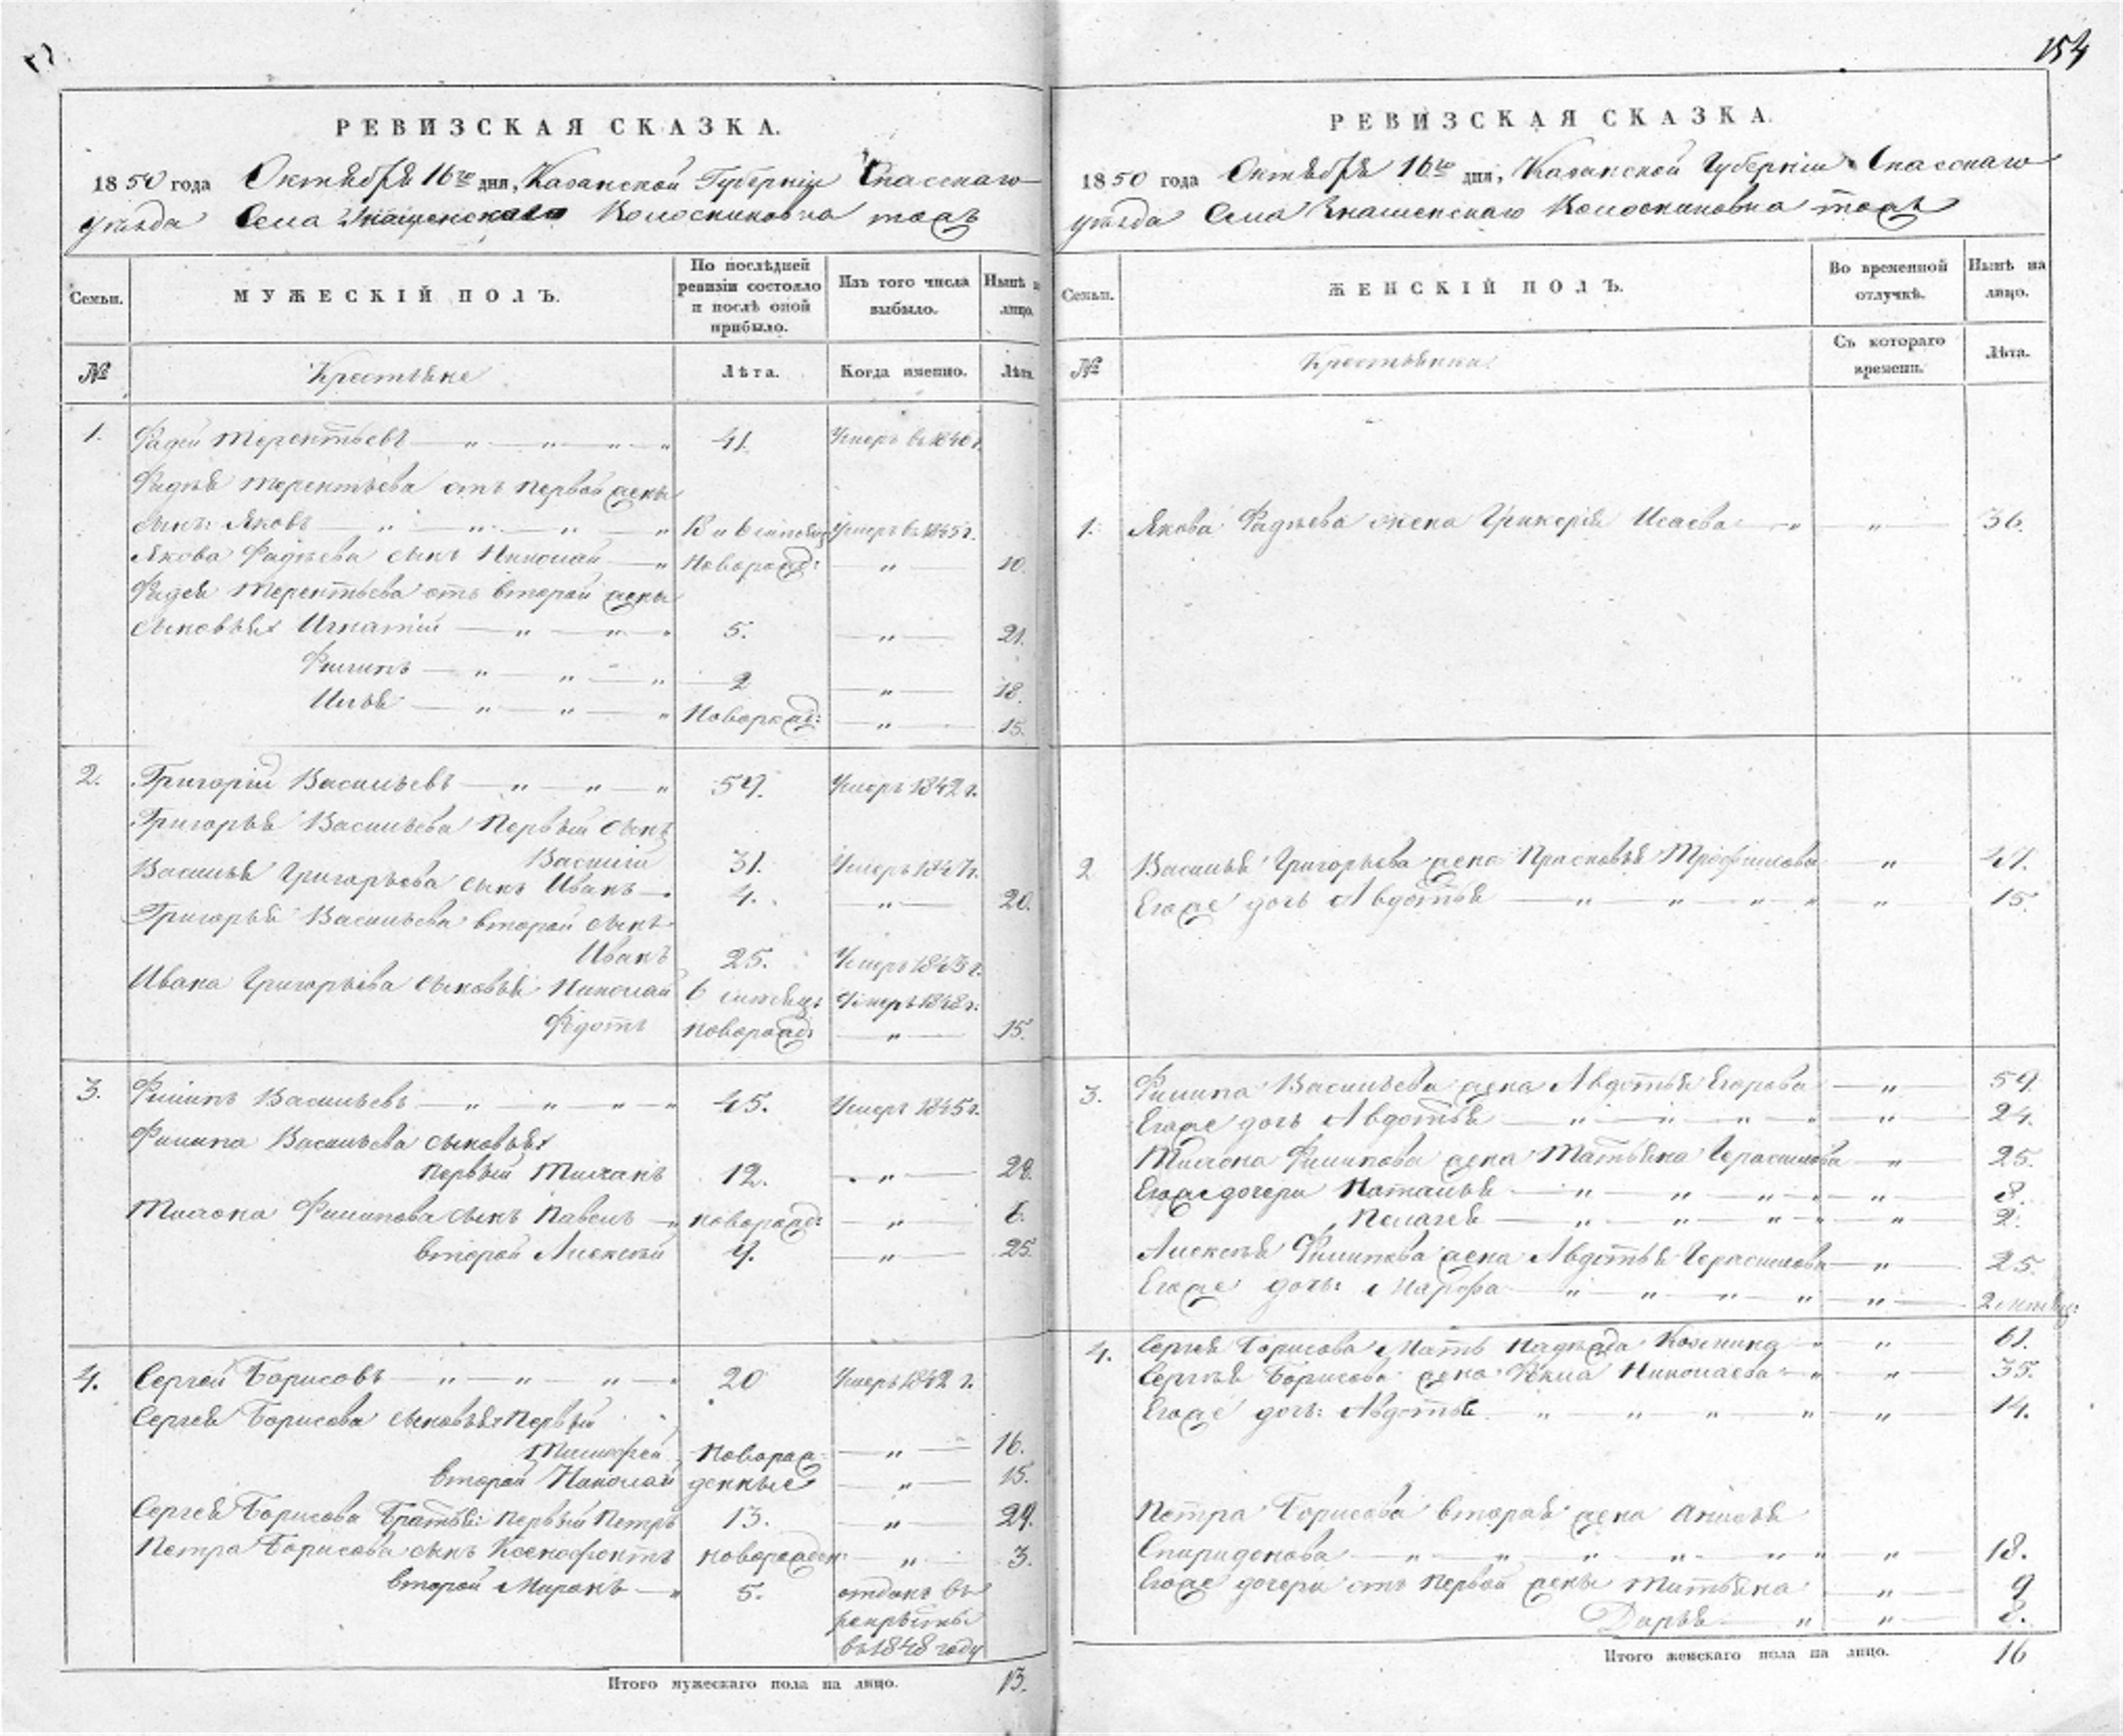 154
РЕВИЗСКАЯ СКАЗКА.
1850 года Октября 16го дня, Казанской Губерніи Спасскаго
уѣзда Села тожъ
Семьи.
МУЖЕСКІЙ ПОЛЪ.
По послѣдней ревизіи состояло и послѣ оной прибыло.
Изъ того числа выбыло.
Нынѣ на лицо.
№
Крестьяне
Лѣта.
Когда именно.
Лѣта.
1. Фадей Терентьевъ 41. Умеръ въ 1840 г.
Фадея Терентьева отъ первой жены
сынъ: Яковъ 13 и 6 мѣсяц. Умеръ въ 1845 г.
Якова Фадѣева сынъ Николай Новорожд: " 10.
Фадея Терентьева отъ второй жены
сыновья: Игнатій 5. " 21.
Филипъ 2 " 18.
Илья Новорожд: " 15.
2. Григорій Васильевъ 59. Умеръ 1842 г.
Григорья Васильева первый сынъ
Василій 31. Умеръ 1847 г.
Василья Григорьева сынъ Иванъ 4. " 20.
Григорья Васильева второй сынъ
Иванъ 25. Умеръ 1843 г.
Ивана Григорьева сыновья Николай 6 мѣсяцъ Умеръ 1842 г.
Федотъ новорожд: " 15.
3. Филипъ Васильевъ 45. Умеръ 1845 г.
Филипа Васильева сыновья
первый Тихонъ 12. " 28.
Тихона Филипова сынъ Павелъ новорожд: " 6.
второй Алексѣй 9. " 25.
4. Сергей Борисовъ 20 Умеръ 1842 г.
Сергея Борисова сыновья: первый
Тимофей Новорож- " 16.
второй Николай денные " 15.
Сергея Борисова братья: первый Петръ 13. " 29.
Петра Борисова сынъ Ксенофонтъ новорожден: " 3.
второй Миронъ 5. отданъ въ
рекруты
въ 1848 году
Итого мужескаго пола на лицо. 13.
РЕВИЗСКАЯ СКАЗКА.
1850 года Октября 16го дня, Казанской Губерніи Спасскаго
уѣзда Села тожъ
Семьи.
ЖЕНСКІЙ ПОЛЪ.
Во временной отлучкѣ.
Нынѣ на лицо.
№
Крестьянки
Съ котораго времени.
Лѣта.
1. Якова Фадѣева жена Гликерія Исаева " 36.
2 Василья Григорьева жена Прасковья Трофимова " 47.
Егоже дочь Авдотья " 15.
3. Филипа Васильева жена Авдотья Егорова " 59.
Егоже дочь Авдотья " 24.
Тихона Филипова жена Татьяна Герасимова " 25.
Егоже дочери Наталья " 8.
Пелагея " 2.
Алексѣя Филипова жена Авдотья Герасимова " 25.
Егоже дочь: Марфа " 2 мѣсяц:
4. Сергея Борисова Мать Надежда " 61.
Сергѣя Борисова жена Николаева " 35.
Егоже дочь: Авдотья " 14.
Петра Борисова вторая жена Анисья
Спиридонова " 18.
Егоже дочери отъ первой жены Татьяна " 9
Дарья " 8.
Итого женскаго пола на лицо. 16